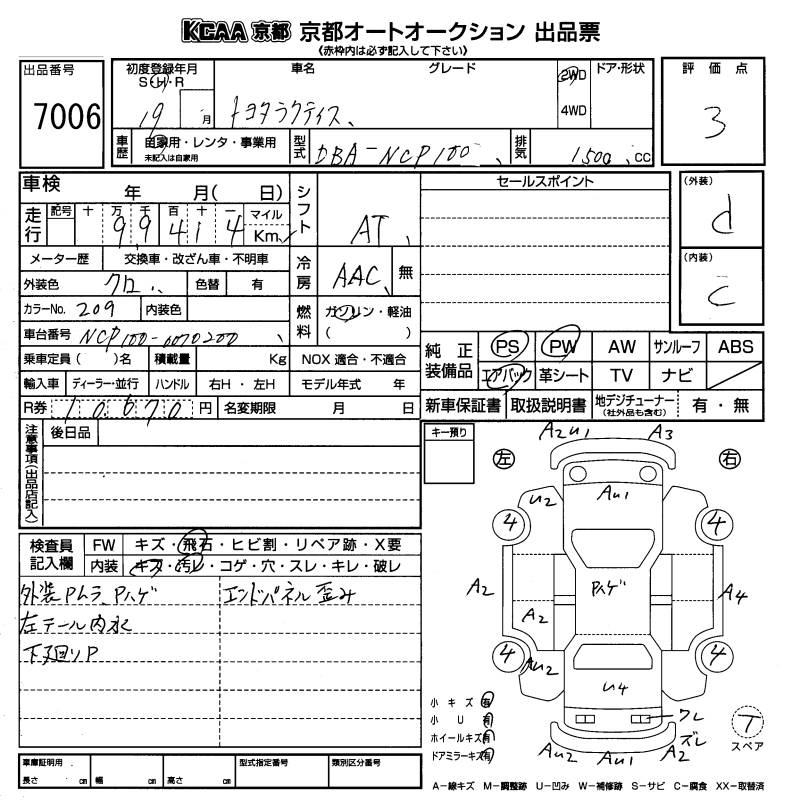 KCAA 京都 京都オートオークション 出品票
《赤枠内は必ず記入して下さい》
出品番号 7006
初度登録年月 S・H・R 19 月
車名 グレード トヨタラクティス、
2WD 4WD
ドア・形状
評価点 3
車歴 自家用・レンタ・事業用 未記入は自家用
型式 DBA-NCP100、
排気 1500、cc
車検 年 月( 日)
シフト AT、
セールスポイント
(外装) d
走行 記号 十 万 千 百 十 一 マイル Km
9 9 4 1 4
メーター歴 交換車・改ざん車・不明車
冷房 AAC、 無
(内装) C
外装色 クロ、、 色替 有
カラーNo. 209 内装色
燃料 ガソリン・軽油 ( )
車台番号 NCP100-0070200、
純正装備品 PS PW AW サンルーフ ABS
エアバック 革シート TV ナビ
乗車定員( )名 積載量 Kg NOX 適合・不適合
輸入車 ディーラー・並行 ハンドル 右H・左H モデル年式 年
新車保証書 取扱説明書 地デジチューナー (社外品も含む) 有・無
R券 10,670 円 名変期限 月 日
注意事項(出品店記入) 後日品
キー預り
左 右
A2U1 A3
U2 AU1
4 4
A2 Pハゲ A4
A2
4 4
AU2 U4
検査員記入欄 FW キズ・飛石・ヒビ割・リペア跡・X要
内装 キズ・汚レ・コゲ・穴・スレ・キレ・破レ
外装Pムラ、Pハゲ エンドパネル歪み
左テール内水
下廻りP
小キズ 有
小U 有 ワレ
ホイールキズ 有 ズレ
ドアミラーキズ 有 AU2 AU1 A2
T スペア
車庫証明用 長さ cm 幅 cm 高さ cm
型式指定番号 類別区分番号
A-線キズ M-調整跡 U-凹み W-補修跡 S-サビ C-腐食 XX-取替済